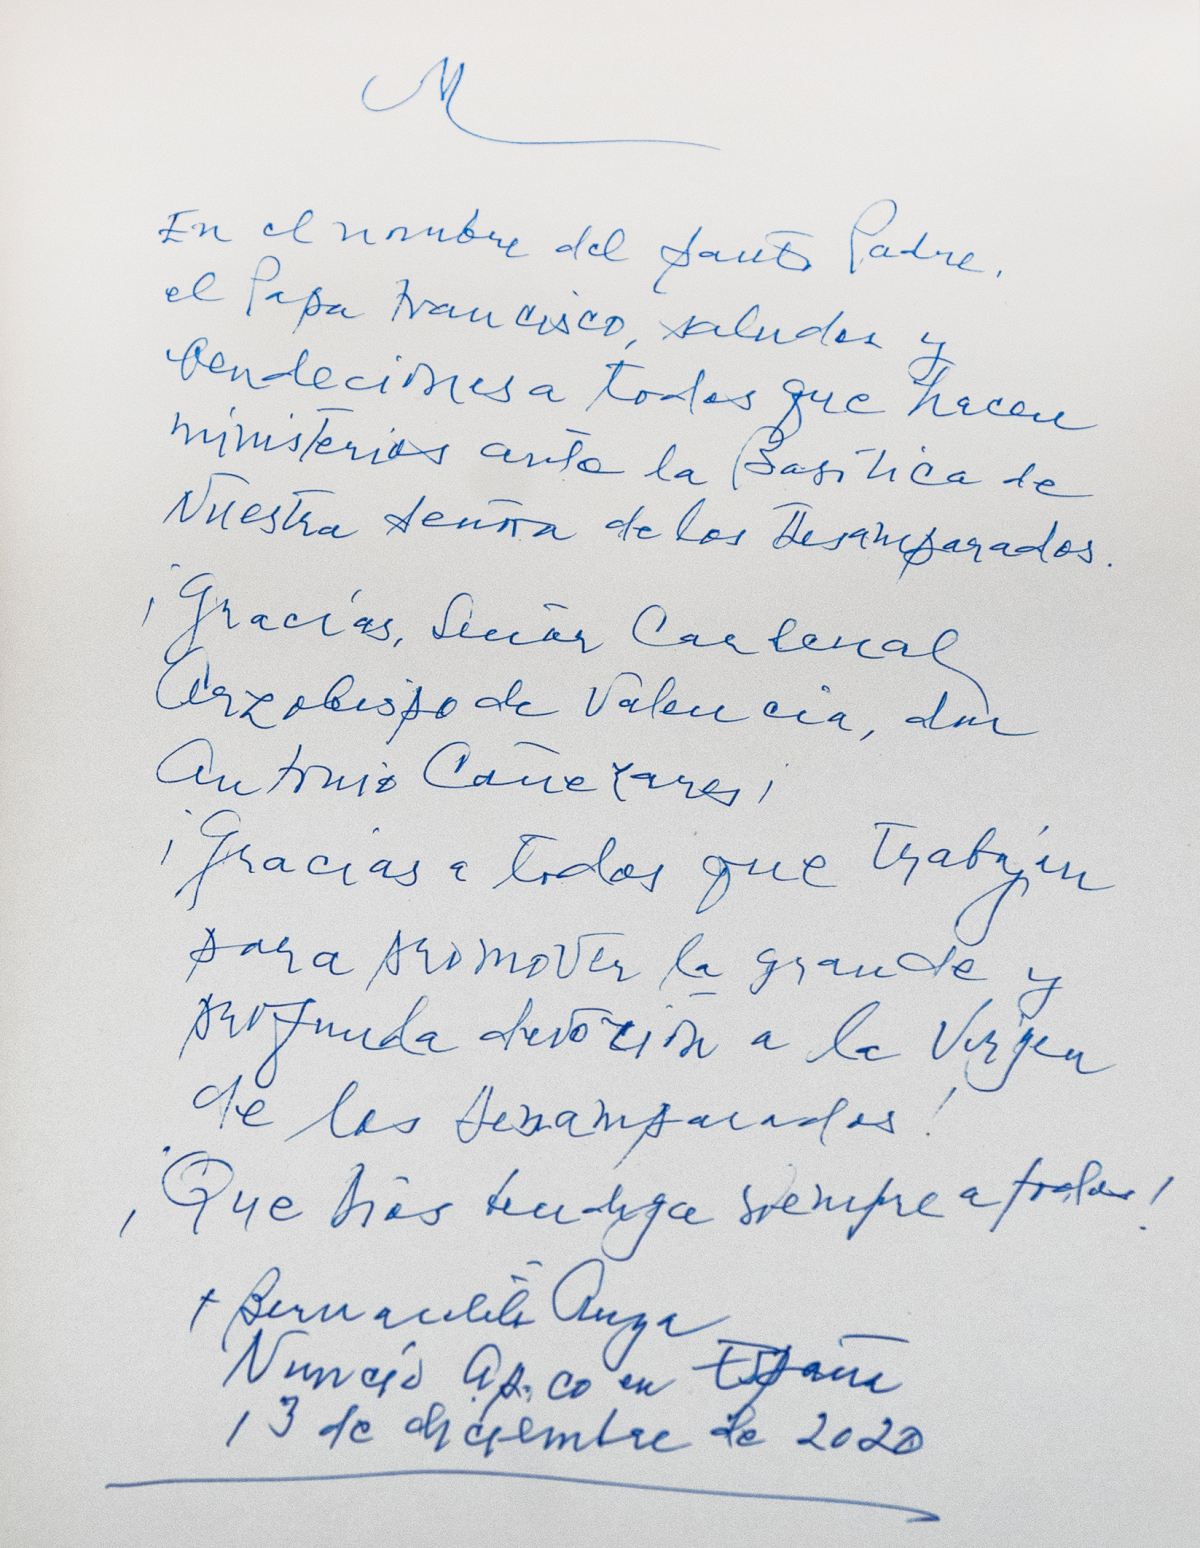 En el nombre del Santo Padre,
el Papa Francisco, saludos y
bendeciones a todos que hacen
ministerios ante la Basílica de
Nuestra Señora de los Desamparados.
¡Gracias, Señor Cardenal
Arzobispo de Valencia, don
Antonio Cañezares!
¡Gracias a todos que trabajan
para promover la grande y
profunda devoción a la Virgen
de los Desamparados!
¡Que Dios bendiga siempre a todos!
+ Bernardito Auza
Nuncio Ap.co en España
13 de diciembre de 2020